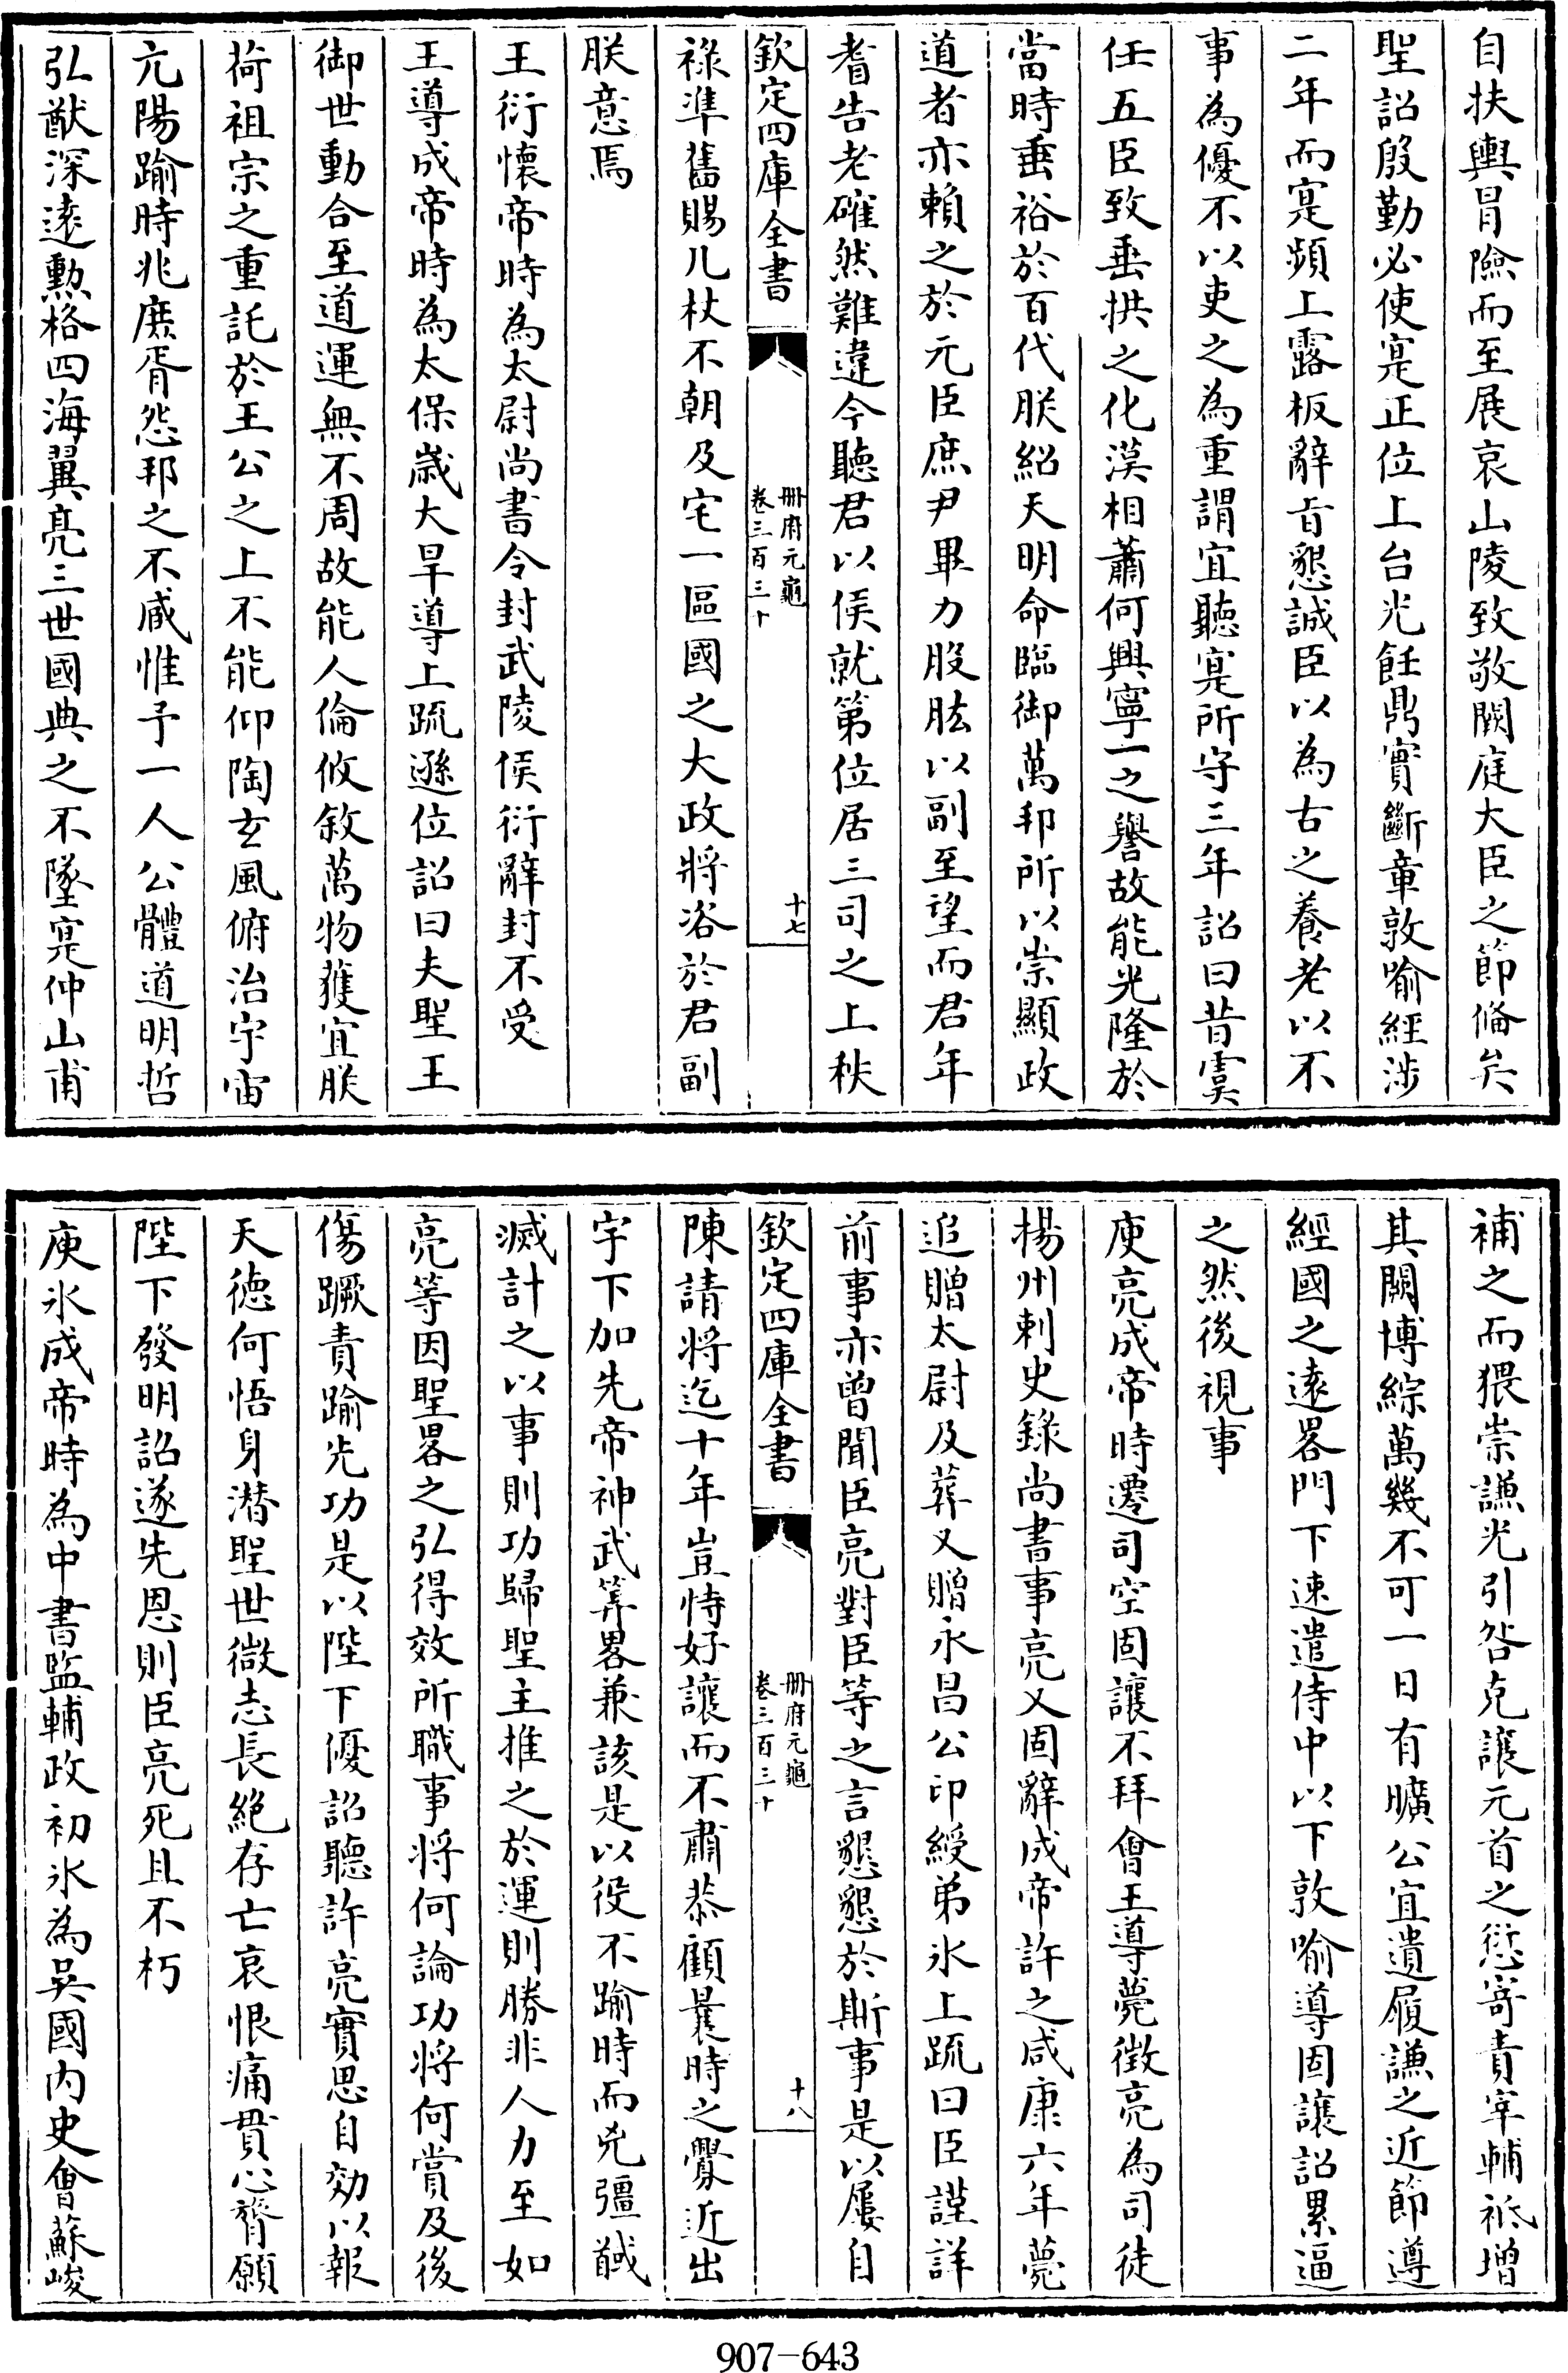 自扶輿冒險而至展哀山陵致敬闕庭大臣之節備矣
聖詔殷勤必使寔正位上台光飪鼎實斷章敦喻經涉
二年而寔頻上露板辭旨懇誠臣以為古之養老以不
事為優不以吏之為重謂宜聽寔所守三年詔曰昔虞
任五臣致垂拱之化漢相蕭何興寧一之譽故能光隆於
當時垂裕於百代朕紹天明命臨御萬邦所以崇顯政
道者亦賴之於元臣庶尹畢力股肱以副至望而君年
耆告老確然難違今聽君以侯就第位居三司之上秩
欽定四庫全書 冊府元龜 卷三百三十 十七
祿準舊賜几杖不朝及宅一區國之大政將咨於君副
朕意焉
王衍懷帝時為太尉尚書令封武陵侯衍辭封不受
王導成帝時為太保歲大旱導上疏遜位詔曰夫聖王
御世動合至道運無不周故能人倫攸敘萬物獲宜朕
荷祖宗之重託於王公之上不能仰陶玄風俯洽宇宙
亢陽踰時兆庶胥怨邦之不臧惟予一人公體道明哲
弘猷深遠勲格四海翼亮三世國典之不墜寔仲山甫
補之而猥崇謙光引咎克讓元首之愆寄責宰輔祗增
其闕博綜萬幾不可一日有曠公宜遺履謙之近節遵
經國之遠畧門下速遣侍中以下敦喻導固讓詔累逼
之然後視事
庾亮成帝時遷司空固讓不拜會王導薨徵亮為司徒
揚州刺史錄尚書事亮又固辭成帝許之咸康六年薨
追贈太尉及葬又贈永昌公印綬弟氷上疏曰臣謹詳
前事亦曾聞臣亮對臣等之言懇懇於斯事是以屢自
欽定四庫全書 冊府元龜 卷三百三十 十八
陳請將迄十年豈恃好讓而不肅恭顧曩時之釁近出
宇下加先帝神武筭畧兼該是以役不踰時而兇彊馘
滅計之以事則功歸聖主推之於運則勝非人力至如
亮等因聖畧之弘得效所職事將何論功將何賞及後
傷蹶責踰先功是以陛下優詔聽許亮實思自効以報
天德何悟身潛聖世微志長絶存亡哀恨痛貫心膂願
陛下發明詔遂先恩則臣亮死且不朽
庾氷成帝時為中書監輔政初氷為吳國內史會蘇峻
907-643